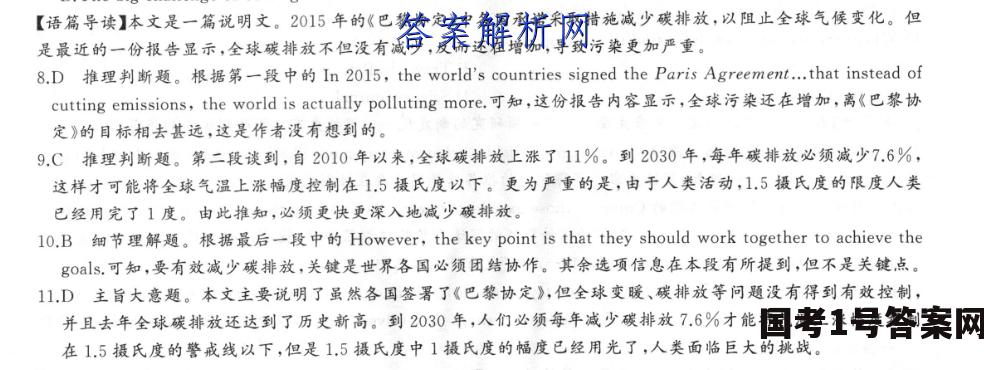 【语篇导读】本文是一篇说明文。2015 年的《巴黎协定》中各国承诺采取措施减少碳排放,以阻止全球气候变化。但
答案解析网
是最近的一份报告显示,全球碳排放不但没有减少,反而还在增加,导致污染更加严重。
8.D 推理判断题。根据第一段中的 In 2015, the world's countries signed the Paris Agreement...that instead of
cutting emissions, the world is actually polluting more.可知,这份报告内容显示,全球污染还在增加,离《巴黎协
定》的目标相去甚远,这是作者没有想到的。
9.C 推理判断题。第二段谈到,自 2010 年以来,全球碳排放上涨了 11%。到 2030 年,每年碳排放必须减少7.6%,
这样才可能将全球气温上涨幅度控制在 1.5 摄氏度以下。更为严重的是,由于人类活动,1.5 摄氏度的限度人类
已经用完了 1 度。由此推知,必须更快更深入地减少碳排放。
10.B 细节理解题。根据最后一段中的 However, the key point is that they should work together to achieve the
goals.可知,要有效减少碳排放,关键是世界各国必须团结协作。其余选项信息在本段有所提到,但不是关键点。
11.D 主旨大意题。本文主要说明了虽然各国签署了《巴黎协定》,但全球变暖、碳排放等问题没有得到有效控制,
并且去年全球碳排放还达到了历史新高。到 2030 年,人们必须每年减少碳排放 7.6%才能
国考1号答案网
在 1.5 摄氏度的警戒线以下,但是 1.5 摄氏度中 1 摄氏度的幅度已经用光了,人类面临巨大的挑战。